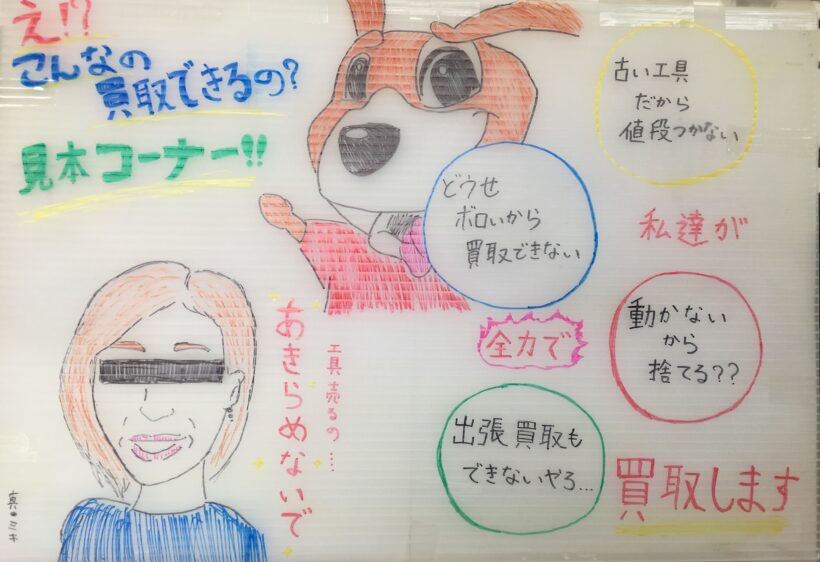 え!?
こんなの
買取できるの?
見本コーナー!!
古い工具
だから
値段つかない
どうせ
ボロいから
買取できない
私達が
動かない
から
捨てる??
全力で
工具売るの…
あきらめないで
出張買取も
できないやろ…
買取します
真・ミキ